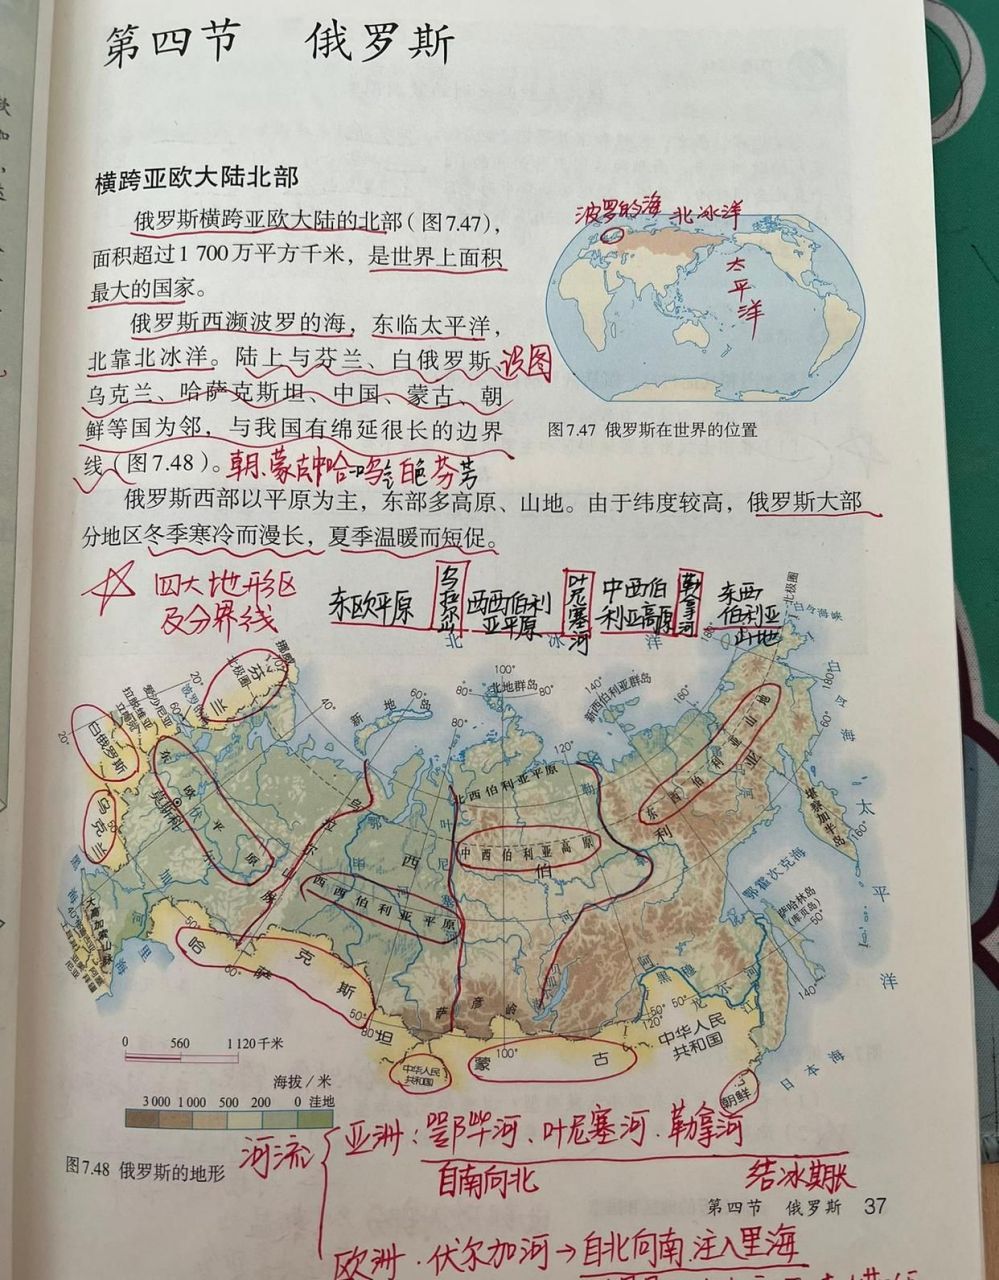 第四节 俄罗斯
横跨亚欧大陆北部
俄罗斯横跨亚欧大陆的北部(图7.47),
面积超过1 700万平方千米,是世界上面积
最大的国家。
俄罗斯西濒波罗的海,东临太平洋,
北靠北冰洋。陆上与芬兰、白俄罗斯、
乌克兰、哈萨克斯坦、中国、蒙古、朝
鲜等国为邻,与我国有绵延很长的边界
线(图7.48)。
读图
波罗的海 北冰洋
太平洋
图7.47 俄罗斯在世界的位置
俄罗斯西部以平原为主,东部多高原、山地。由于纬度较高,俄罗斯大部
分地区冬季寒冷而漫长,夏季温暖而短促。
四大地形区
及分界线
东欧平原
乌拉尔山
西西伯利
亚平原
叶尼塞河
中西伯
利亚高原
勒拿河
东西
伯利亚
山地
北冰洋
北极圈
白令海峡
挪威
芬兰
北极圈
波罗的海
爱沙尼亚
拉脱维亚
立陶宛
白俄罗斯
乌克兰
黑海
大高加索山脉
里海
20°
20°
40°
60°
80°
80°
80°
100°
120°
140°
160°
180°
180°
60°
60°
新地岛
北地群岛
新西伯利亚群岛
白令海
东欧平原
莫斯科
伏尔加河
乌拉尔山脉
鄂毕河
西西伯利亚平原
叶尼塞河
北西伯利亚平原
中西伯利亚高原
勒拿河
东西伯利亚山地
西伯利亚
堪察加半岛
160°
太平洋
鄂霍次克海
萨哈林岛
(库页岛)
50°
140°
阿穆尔河
黑龙江
贝加尔湖
萨彦岭
哈萨克斯坦
50°
60°
50°
80°
中华人民
共和国
蒙古
100°
50°
50°
120°
中华人民
共和国
朝鲜
日本海
0 560 1 120千米
海拔/米
3 000 1 000 500 200 0 洼地
图7.48 俄罗斯的地形
河流
亚洲:鄂毕河、叶尼塞河、勒拿河
自南向北 结冰期长
第四节 俄罗斯 37
欧洲·伏尔加河→自北向南.注入里海